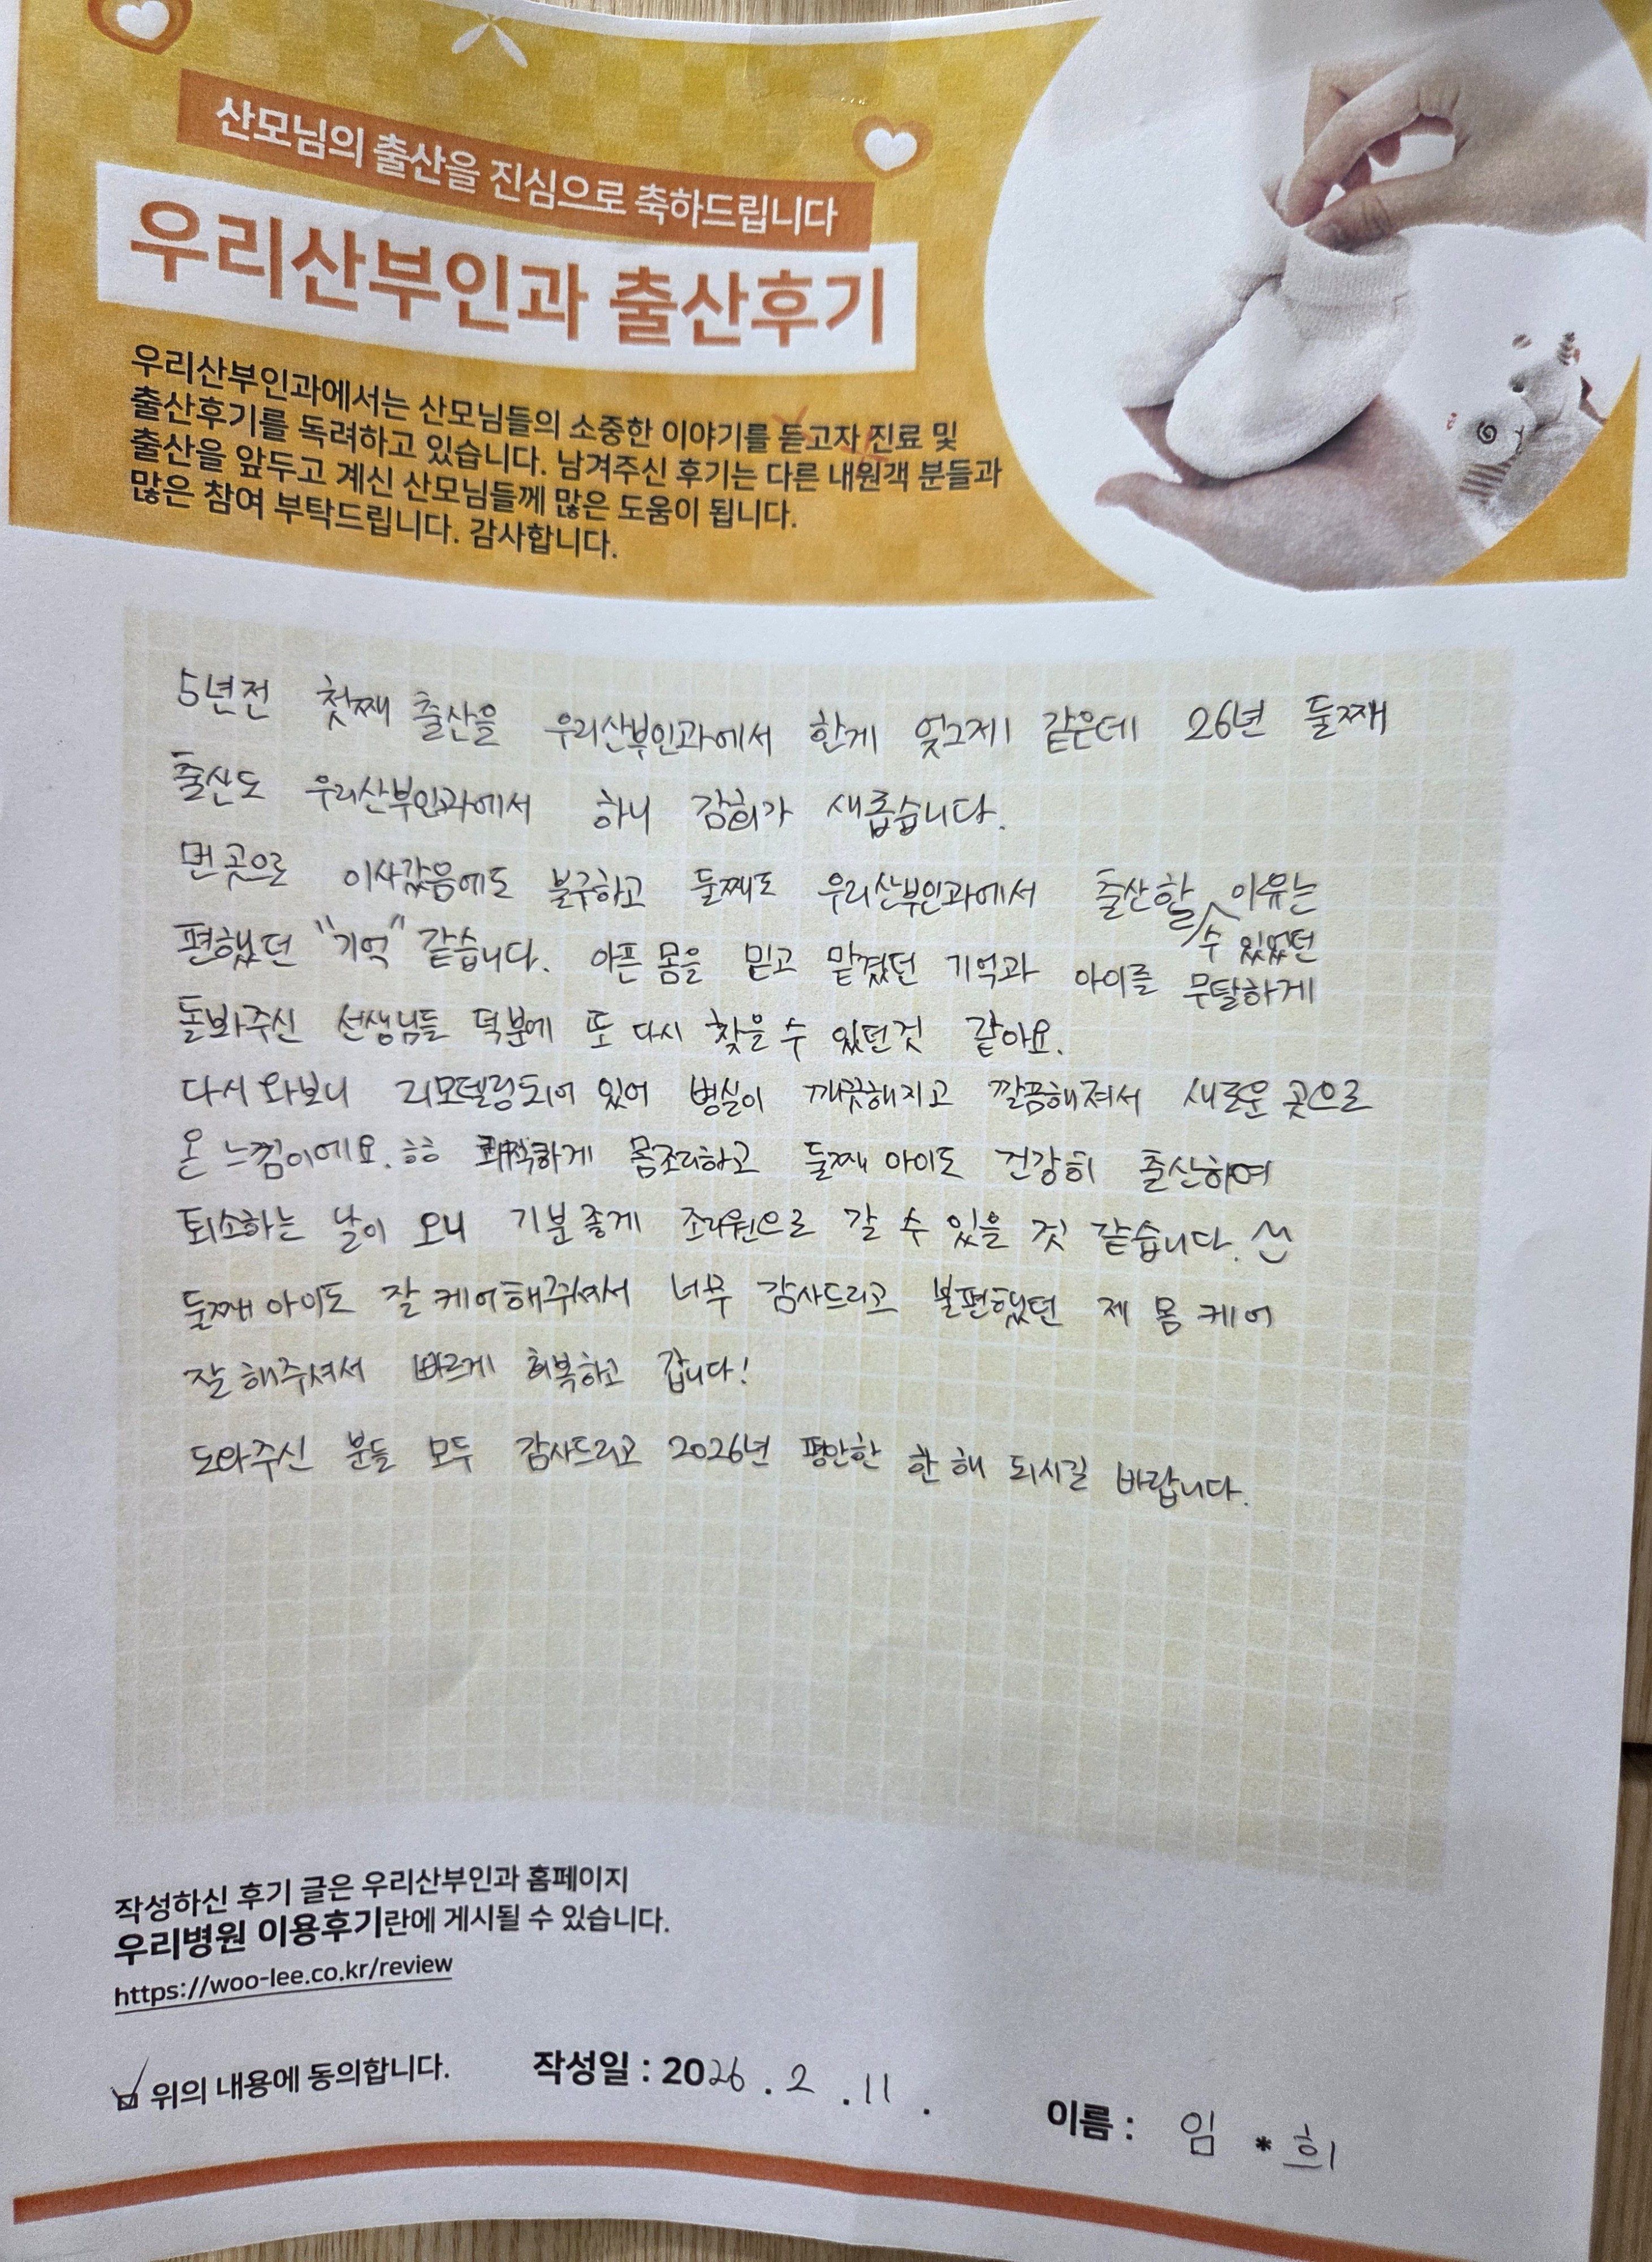 산모님의 출산을 진심으로 축하드립니다
우리산부인과 출산후기
우리산부인과에서는 산모님들의 소중한 이야기를 듣고자 진료 및
출산후기를 독려하고 있습니다. 남겨주신 후기는 다른 내원객 분들과
출산을 앞두고 계신 산모님들께 많은 도움이 됩니다.
많은 참여 부탁드립니다. 감사합니다.
5년전 첫째 출산을 우리산부인과에서 한게 엊그제 같은데 26년 둘째
출산도 우리산부인과에서 하니 감회가 새롭습니다.
먼 곳으로 이사갔음에도 불구하고 둘째도 우리산부인과에서 출산할 수 있었던 이유는
편했던 "기억" 같습니다. 아픈 몸을 믿고 맡겼던 기억과 아이를 무탈하게
돌봐주신 선생님들 덕분에 또 다시 찾을 수 있던것 같아요.
다시 와보니 리모델링되어 있어 병실이 깨끗해지고 깔끔해져서 새로운 곳으로
온 느낌이에요. ㅎㅎ 쾌적하게 몸조리하고 둘째 아이도 건강히 출산하여
퇴소하는 날이 오니 기분좋게 조리원으로 갈 수 있을 것 같습니다.
둘째 아이도 잘 케어해주셔서 너무 감사드리고 불편했던 제 몸 케어
잘 해주셔서 빠르게 회복하고 갑니다!
도와주신 분들 모두 감사드리고 2026년 평안한 한 해 되시길 바랍니다.
작성하신 후기 글은 우리산부인과 홈페이지
우리병원 이용후기란에 게시될 수 있습니다.
https://woo-lee.co.kr/review
위의 내용에 동의합니다. 작성일 : 2026 . 2 . 11 .
이름 : 임 * 희